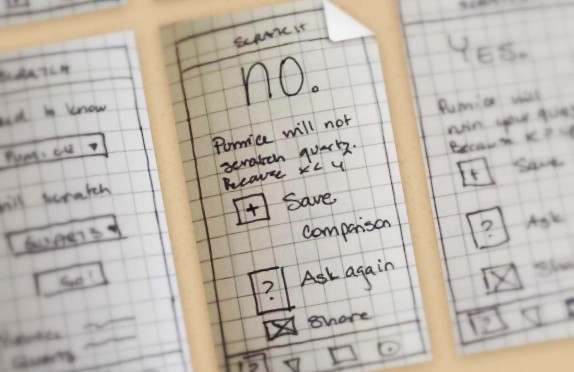 SCRATCH
need to know
Pumice
will scratch
QUARTZ
Go!
SCRATCH
NO.
Pumice will not
scratch quartz.
Because x < y
+ Save
comparison
? Ask again
Share
YES.
Pumice will
ruin your
Because x > y
+ Save
? Ask
Share